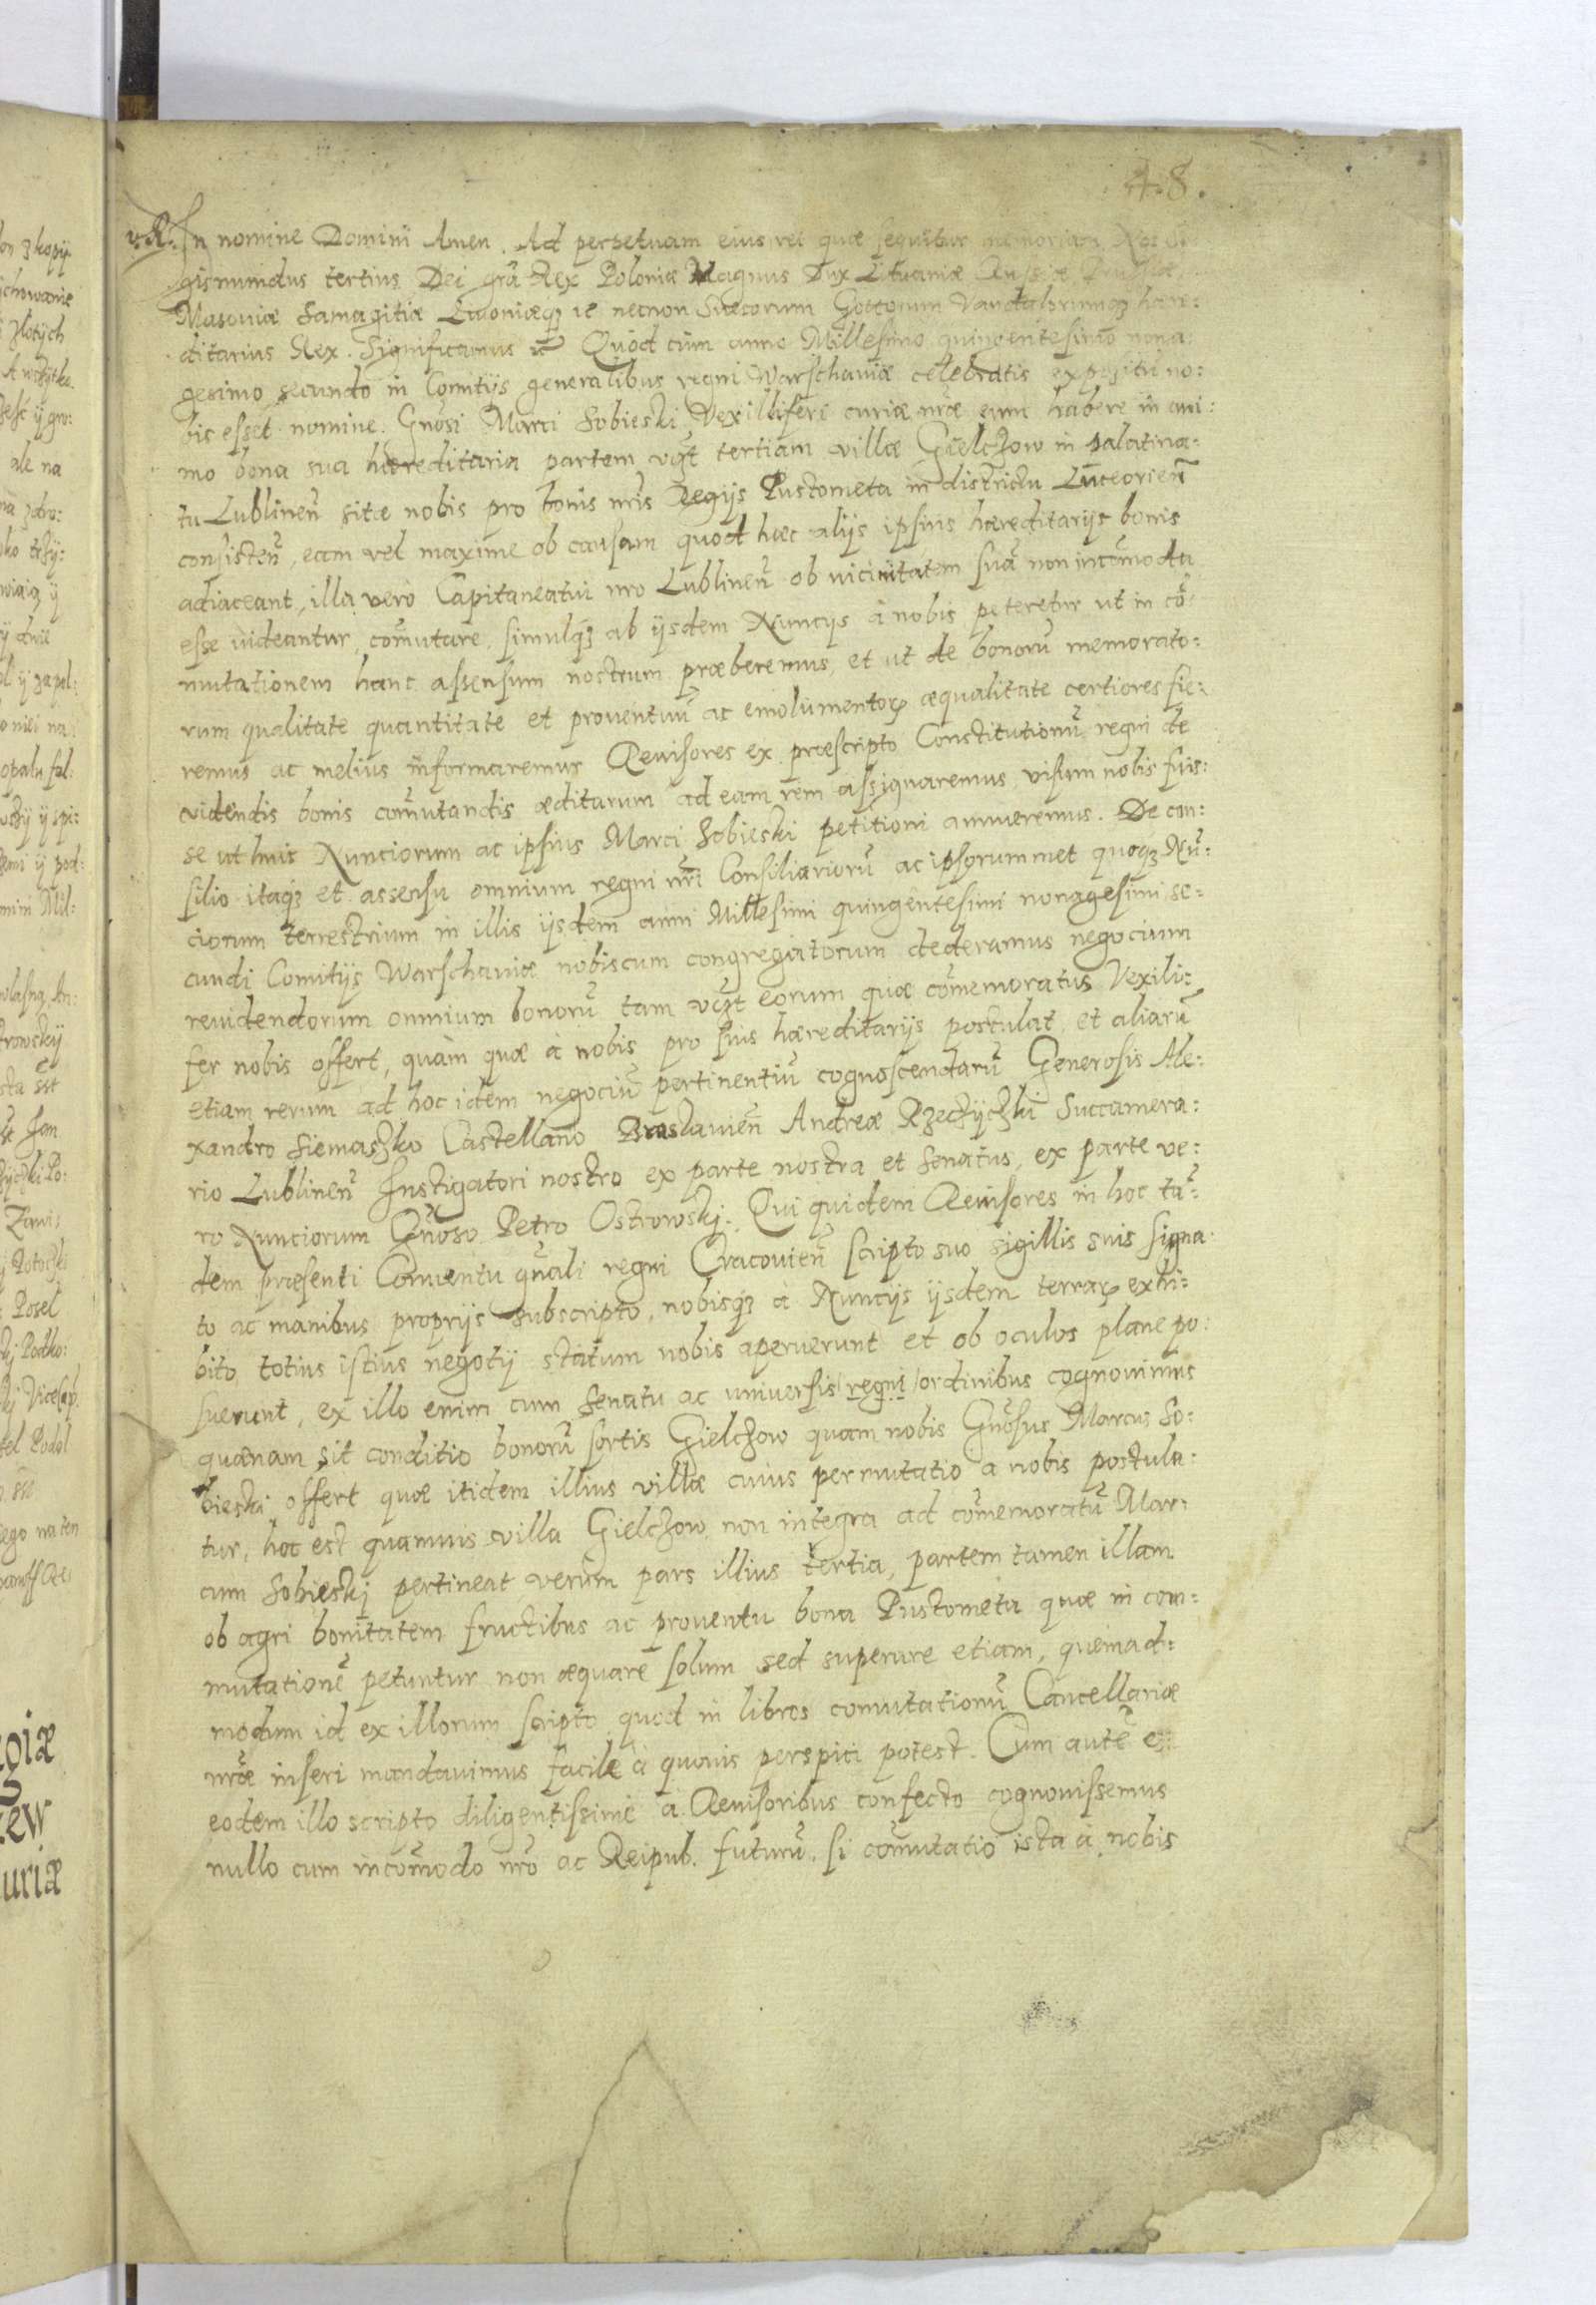 48.
In nomine Domini Amen. Ad perpetuam eius rei quæ sequitur memoriam. Nos Si
gismundus tertius Dei grã Rex Poloniæ Magnus Dux Lituaniæ Russiæ Prussiæ
Masoviæ Samagitiæ Livoniæq3 ic necnon Suecorum Gottorum Vandalorumq3 hære:
ditarius Rex. Significamus ic Quòd cùm anno Millesimo quingentesimo nona:
gesimo secundo in Comitijs generalibus regni Warschaviæ celebratis expositũ no:
bis esset nomine Gnõsi Marci Sobieski Vexilliferi curiæ nr̃æ eum habere in ani:
mo bona sua hæreditaria partem vc3t tertiam villæ Gielchow in palatina:
tu Lublineñ sitæ nobis pro bonis nris Regijs Pustometa in districtu Luceorieñ
consisteñ, eam vel maxime ob causam quod hæc alijs ipsius hæreditarijs bonis
adiaceant, illa verò Capitaneatui nro Lublineñ ob vicinitatem suã non incõmoda
esse videantur, com̃utare, simulq3 ab ijsdem Nuncijs à nobis peteretur ut in cõ
mutationem hanc assensum nostrum præberemus, et ut de bonorũ memorato:
rum qualitate quantitate et proventuũ ac emolumentoꝝ æqualitate certiores fie:
remus ac melius informaremur Revisores ex præscripto Constitutionũ regni de
videndis bonis com̃utandis æditarum ad eam rem assignaremus, visum nobis fuis:
se ut huic Nunciorum ac ipsius Marci Sobieski petitioni annueremus. De con:
silio itaq3 et assensu omnium regni nr̃i Consiliariorũ ac ipsorummet quoq3 Nũ:
ciorum terrestrium in illis ijsdem anni Millesimi quingentesimi nonagesimi se:
cundi Comitijs Warschaviæ nobiscum congregatorum dederamus negocium
revidendorum omnium bonorũ tam vc3t eorum quæ cõmemoratus Vexili:
fer nobis offert, quàm quæ à nobis pro suis hæreditarijs postulat, et aliarũ
etiam rerum ad hoc idem negociũ pertinentiũ cognoscendarũ Generosis Ale:
xandro Siemaszko Castellano Braslavieñ Andreæ Rzeczyczki Succamera:
rio Lublineñ Instigatori nostro ex parte nostra et Senatus, ex parte ve:
ro Nunciorum Gñoso Petro Ostrowski. Qui quidem Revisores in hoc tã:
dem præsenti Conventu gñali regni Cracovieñ scripto suo sigillis suis signa:
to ac manibus proprijs subscripto, nobisq3 à Nuncijs ijsdem terraꝝ exhi:
bito totius istius negotij statum nobis aperuerunt et ob oculos plane po:
suerunt, ex illo enim cum Senatu ac universis regni ordinibus cognovimus
quænam sit conditio bonorũ sortis Gielchow quam nobis Gñosus Marcus So:
bieski offert quæ itidem illius villæ cuius permutatio a nobis postula:
tur, hoc est quamvis villa Gielchow non integra ad cõmemoratũ Mar:
cum Sobieskj pertineat verùm pars illius tertia, partem tamen illam
ob agri bonitatem fructibus ac proventu bona Pustometa quæ in com:
mutationẽ petuntur non æquare solum sed superare etiam, quemad:
modum id ex illorum scripto quod in libros comutationũ Cancellariæ
nr̃æ inseri mandavimus facile à quovis perspici potest. Cum autẽ e
eodem illo scripto diligentissimè a Revisoribus confecto cognovissemus
nullo cum incõmodo nr̃o ac Reipub. futurũ, si com̃utatio ista à nobis